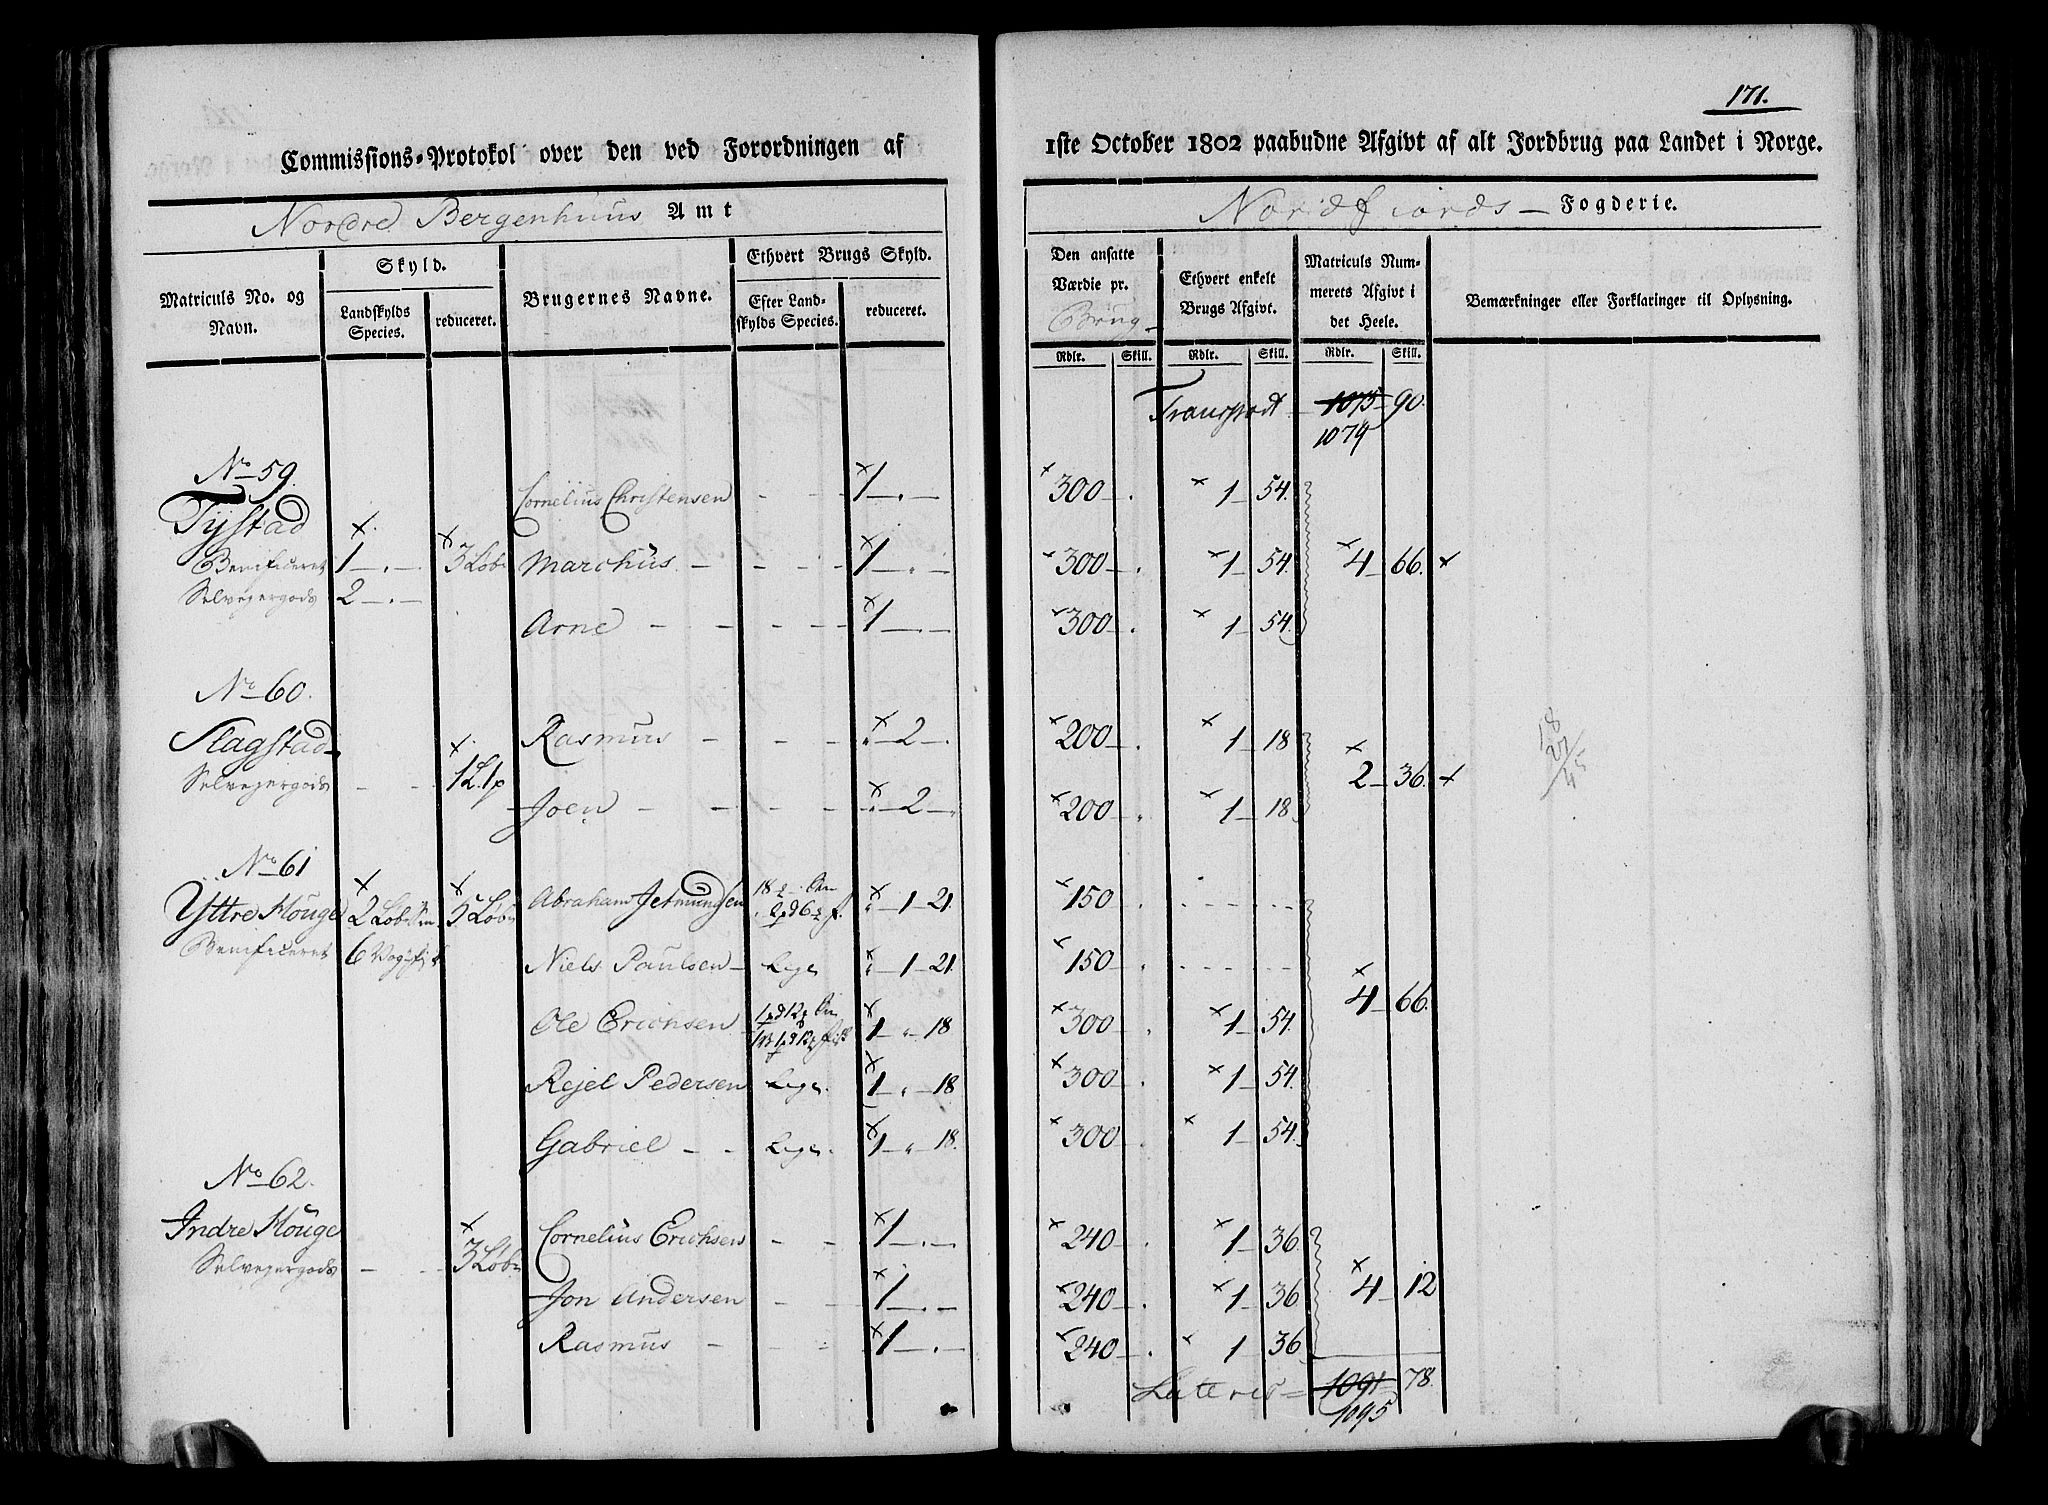 171.
Commissions-Protokol over den ved Forordningen af 1ste October 1802 paabudne Afgivt af alt Jordbrug paa Landet i Norge.
Nordre Bergenhuus Amt
Nordfiords Fogderie.
Matriculs No. og Navn.
Skyld.
Landskylds Species.
reduceret.
Brugernes Navne.
Ethvert Brugs Skyld.
Efter Landskylds Species.
reduceret.
Den ansatte Værdie pr. Brug
Ethvert enkelt Brugs Afgivt.
Matriculs Nummerets Afgivt i det Heele.
Bemærkninger eller Forklaringer til Oplysning.
Rdlr. Skill. Rdlr. Skill. Rdlr. Skill.
Transport 1075 90.
1074
No 59.
Cornelius Christensen - - 1 - . - 300 - . 1 - 54.
Tystad
Beneficeret 1 - . - 3 Løb Marchus - - - 1 - . - 300 - . 1 - 54. 4 - 66.
Selvejergods 2 - . -
Arne - - - - 1 - . - 300 - . 1 - 54.
No 60.
Slagstad Rasmus - - - 2 - . 200 - . 1 - 18
Selvejergods - - 2 - 36.
Joen - - - - 2 - . 200 - . 1 - 18
18
No 61
Yttre Houge 2 Løb 5 Løb Abraham Jetmundsen 1 - 21. 150
Beneficeret 6 Niels Paulsen - Lige 1 - 21. 150 - .
4 - 66.
Ole Erichsen 1 - 18 300 - . 1 - 54.
Rejel Pedersen Lige. 1 - 18 300 - . 1 - 54.
Gabriel - - Lige. 1 - 18. 300 - . 1 - 54.
No 62.
Indre Houge 3 Løb Cornelius Erichsen - - 1 - . - 240 - . 1 - 36.
Selvejergods - -
Jon Andersen - - 1 - . - 240 - . 1 - 36 4 - 12
Rasmus - - - 1 - . - 240 - . 1 36
Lateris 1091 78.
1095